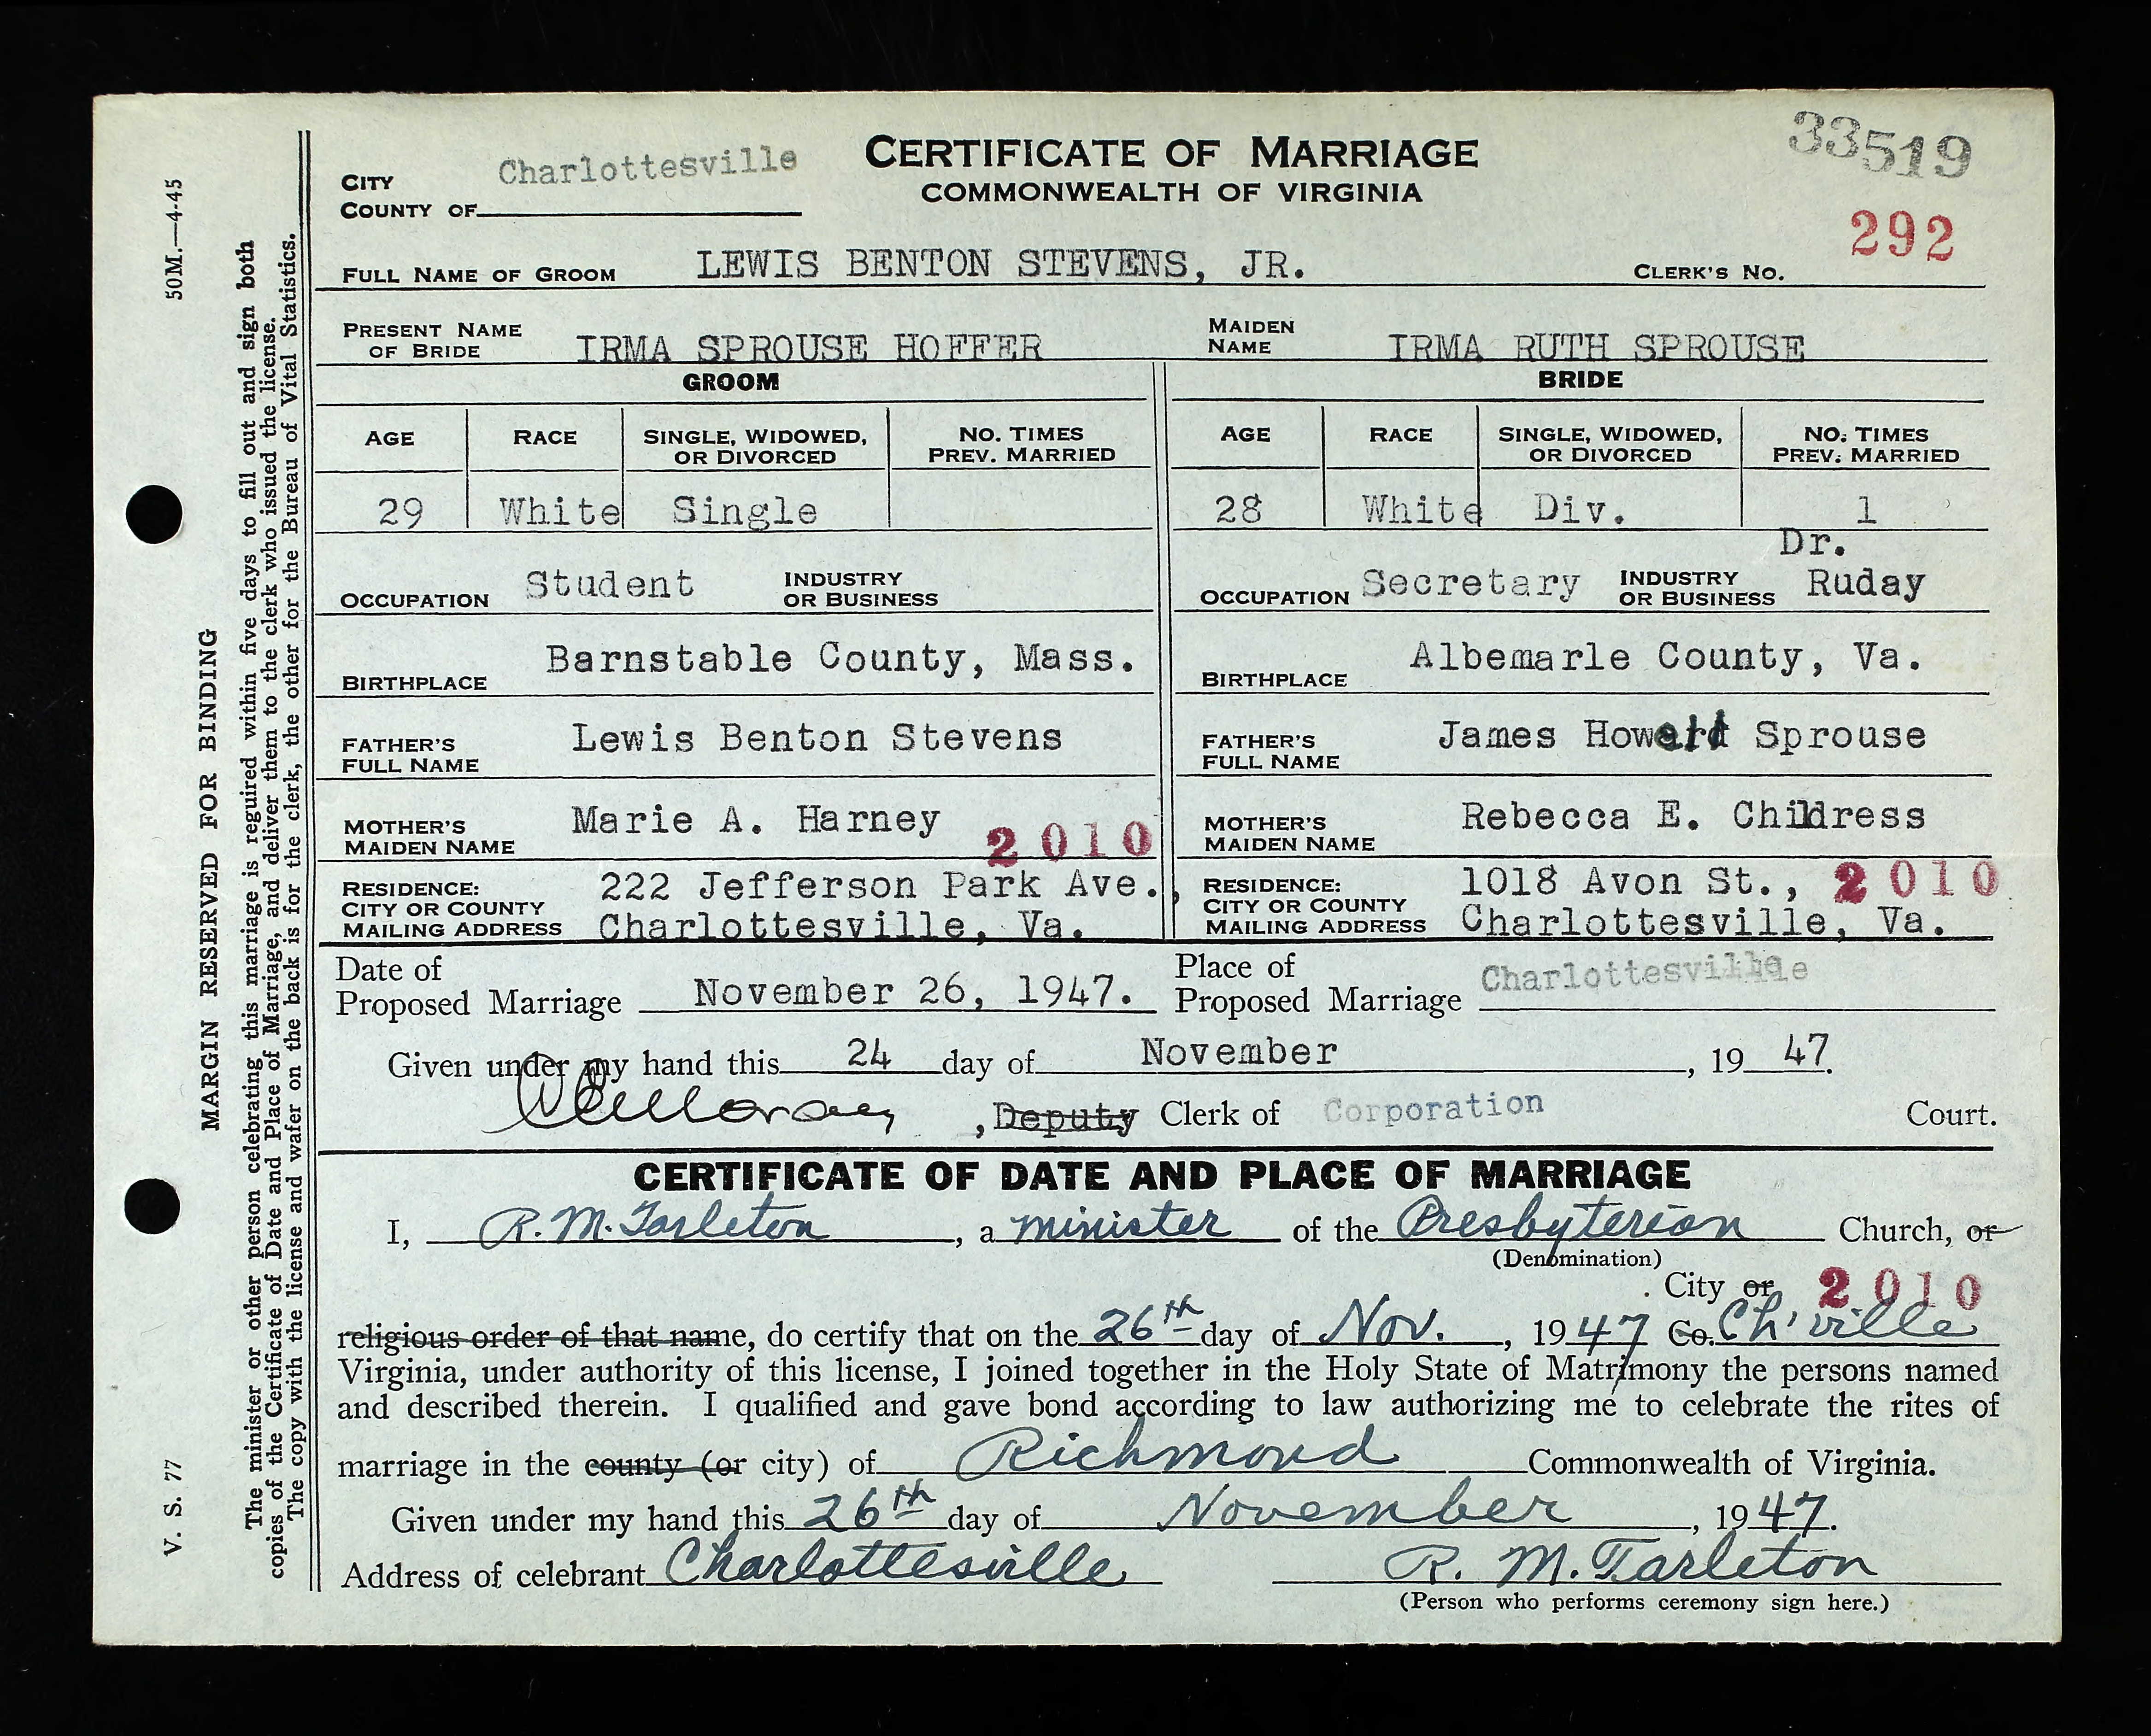 33519
CITY
COUNTY OF Charlottesville
CERTIFICATE OF MARRIAGE
COMMONWEALTH OF VIRGINIA
292
FULL NAME OF GROOM LEWIS BENTON STEVENS, JR. CLERK'S NO.
PRESENT NAME OF BRIDE IRMA SPROUSE HOFFER MAIDEN NAME IRMA RUTH SPROUSE
GROOM BRIDE
AGE RACE SINGLE, WIDOWED, OR DIVORCED NO. TIMES PREV. MARRIED AGE RACE SINGLE, WIDOWED, OR DIVORCED NO. TIMES PREV. MARRIED
29 White Single 28 White Div. 1
OCCUPATION Student INDUSTRY OR BUSINESS OCCUPATION Secretary INDUSTRY OR BUSINESS Dr. Ruday
BIRTHPLACE Barnstable County, Mass. BIRTHPLACE Albemarle County, Va.
FATHER'S FULL NAME Lewis Benton Stevens FATHER'S FULL NAME James Howard Sprouse
MOTHER'S MAIDEN NAME Marie A. Harney 2010 MOTHER'S MAIDEN NAME Rebecca E. Childress
RESIDENCE: CITY OR COUNTY MAILING ADDRESS 222 Jefferson Park Ave., Charlottesville, Va. RESIDENCE: CITY OR COUNTY MAILING ADDRESS 1018 Avon St., 2010 Charlottesville, Va.
Date of Proposed Marriage November 26, 1947. Place of Proposed Marriage Charlottesville
Given under my hand this 24 day of November, 1947.
, Deputy Clerk of Corporation Court.
CERTIFICATE OF DATE AND PLACE OF MARRIAGE
I, R. M. Tarleton, a minister of the Presbyterian Church, or
(Denomination)
City or 2010
religious order of that name, do certify that on the 26th day of Nov., 1947 Co. Ch'ville
Virginia, under authority of this license, I joined together in the Holy State of Matrimony the persons named
and described therein. I qualified and gave bond according to law authorizing me to celebrate the rites of
marriage in the county (or city) of Richmond Commonwealth of Virginia.
Given under my hand this 26th day of November, 1947.
Address of celebrant Charlottesville R. M. Tarleton
(Person who performs ceremony sign here.)
V. S. 77 50M.—4-45
MARGIN RESERVED FOR BINDING
The minister or other person celebrating this marriage is required within five days to fill out and sign both
copies of the Certificate of Date and Place of Marriage, and deliver them to the clerk who issued the license.
The copy with the license and wafer on the back is for the clerk, the other for the Bureau of Vital Statistics.